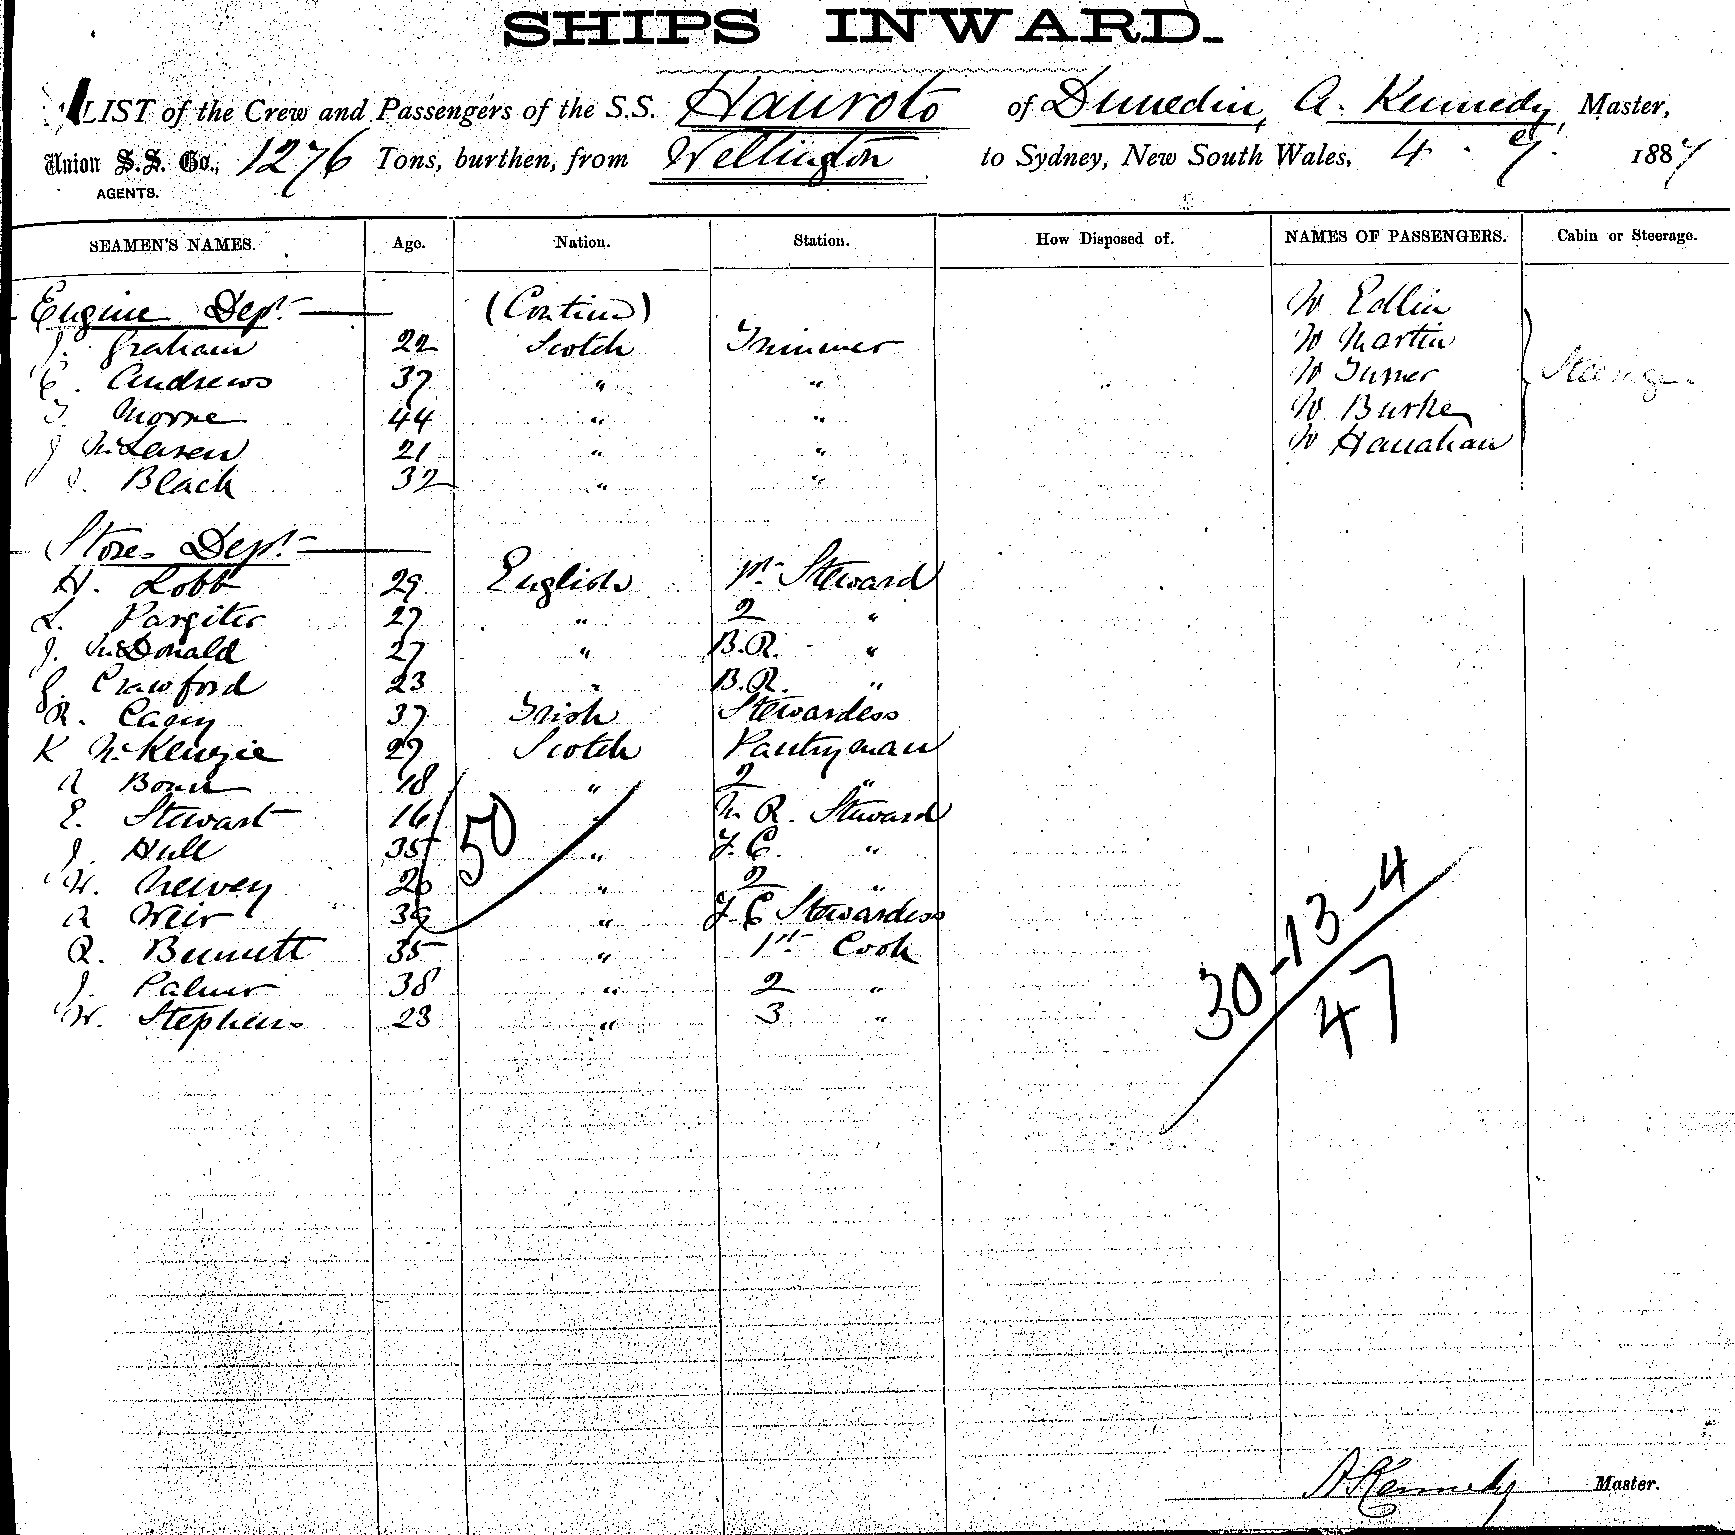 SHIPS INWARD.
LIST of the Crew and Passengers of the S.S. Hauroto of Dunedin, A. Kennedy, Master,
Union S.S. Co., 1276 Tons, burthen, from Wellington to Sydney, New South Wales, 4 . 9. 1887
AGENTS.
SEAMEN'S NAMES. Age. Nation. Station. How Disposed of. NAMES OF PASSENGERS. Cabin or Steerage.
Engine Dept. (Contin) W Edlin
J. Graham 22 Scotch Trimmer W Martin
C. Andrews 37 " " W Turner Steerage
T. Morne 44 " " W Burke
J McLaren 21 " " W Hanahan
J. Black 32 " "
Stores Dept.
H. Lobb 29 English 1st Steward
L. Pargiter 27 " 2 "
J. McDonald 27 " B.R. "
G. Crawford 23 " B.R. "
R. Casey 37 Irish Stewardess
K McKenzie 27 Scotch Pantryman
A 18 " 2 "
E. Stewart 16 " M. R. Steward
50
J. Hull 35 " F.C. "
W. Newey 26 " 2 "
A Weir 39 " F.C Stewardess
R. Bennett 35 " 1st Cook
J. Palmer 38 " 2 "
W. Stephens 23 " 3 "
30-13-4
47
A Kennedy Master.